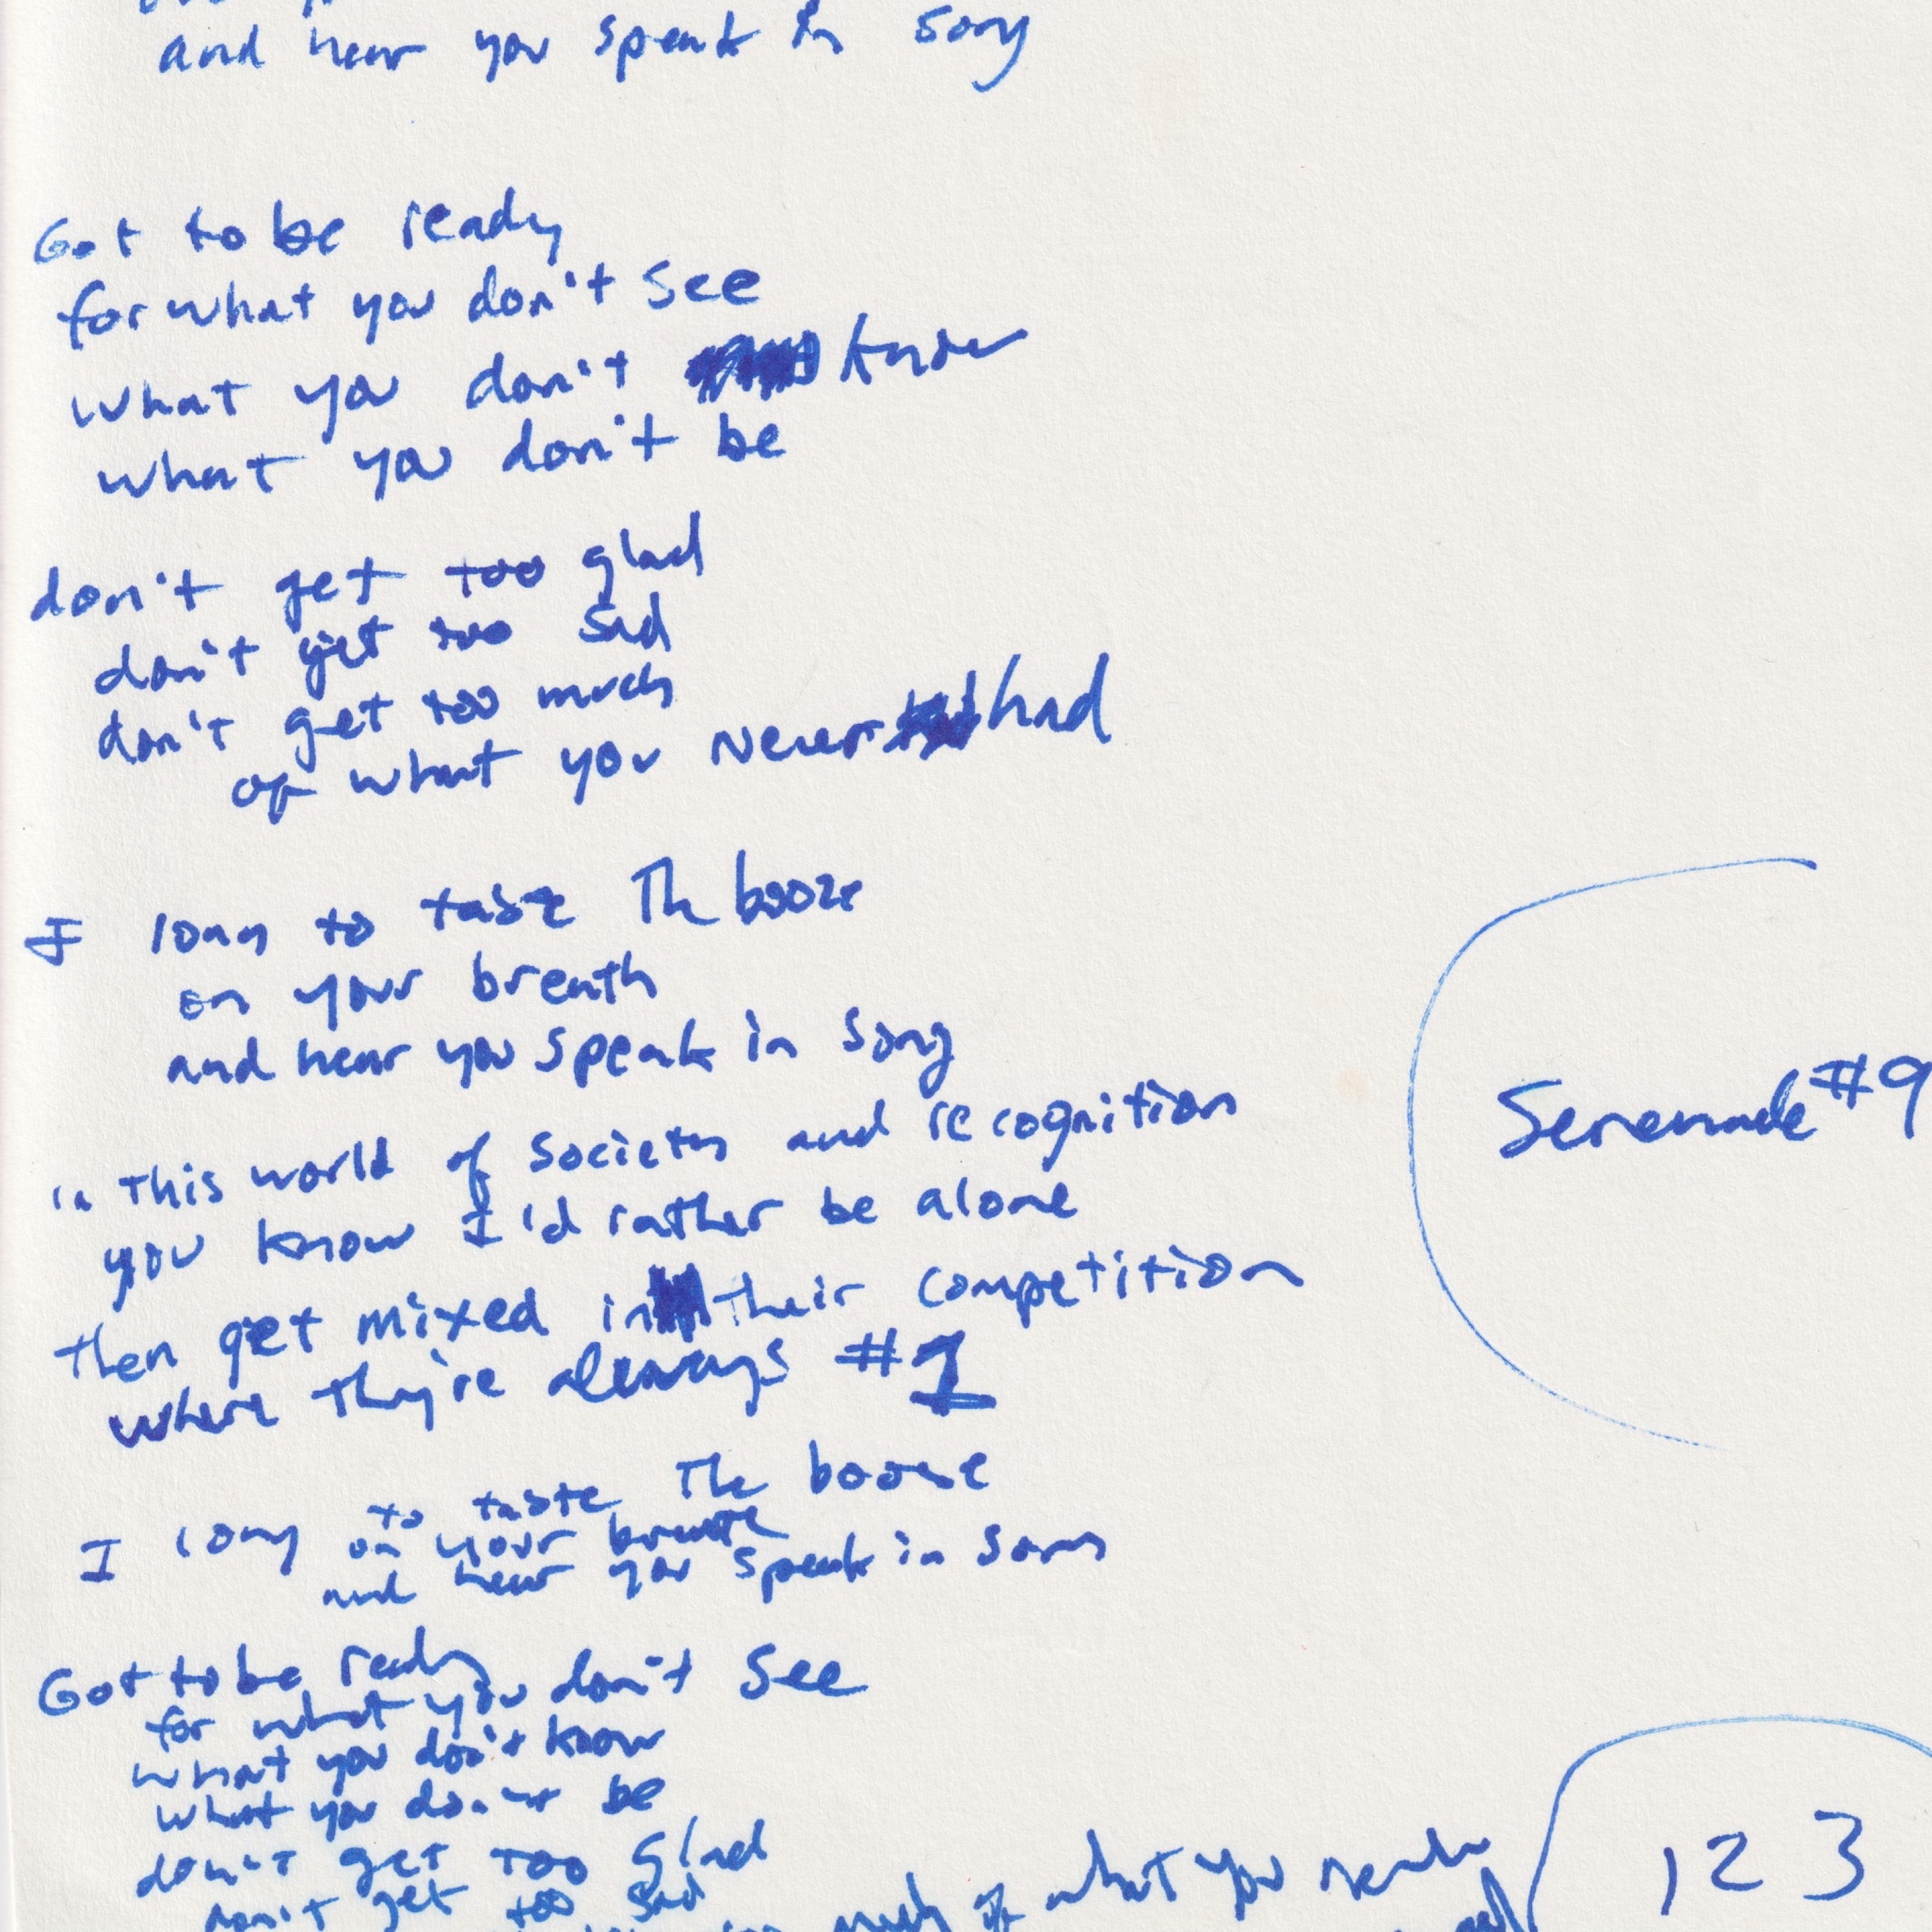 and hear you speak in song
Got to be ready
for what you don't see
what you don't know
what you don't be
don't get too glad
don't get too sad
don't get too much
of what you never had
I long to taste The booze
on your breath
and hear you speak in song
in this world of society and recognition
you know I'd rather be alone
then get mixed in their competition
where they're always #1
Serenade #9
I long to taste The booze
on your breath
and hear you speak in song
Got to be ready
for what you don't see
what you don't know
what you don't be
don't get too glad
don't get too sad
much of what you
1 2 3